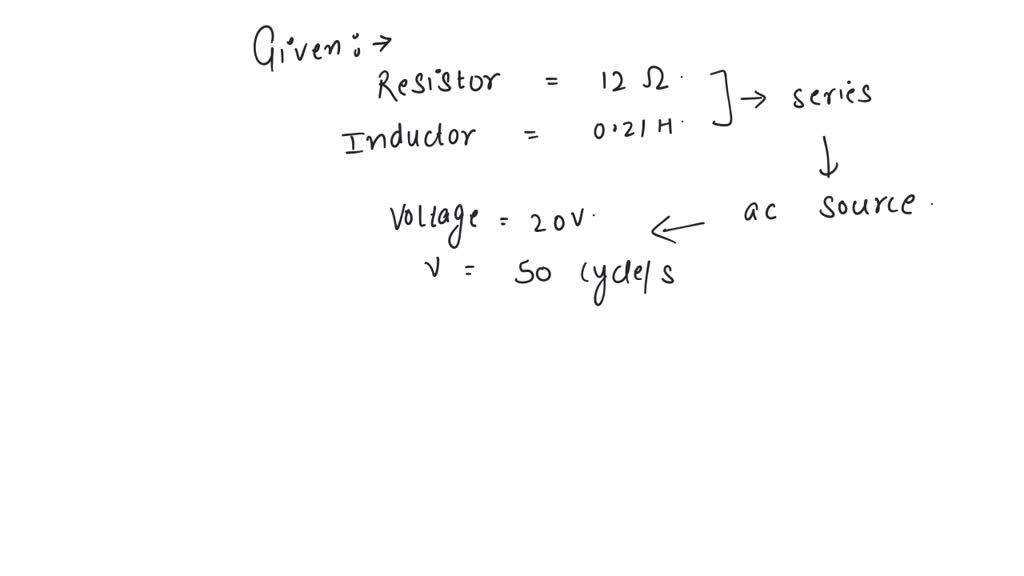 Given : →
Resistor = 12 Ω. ] → series
Inductor = 0.21 H.
↓
ac source.
Voltage = 20V. ←
ν = 50 cycle/s